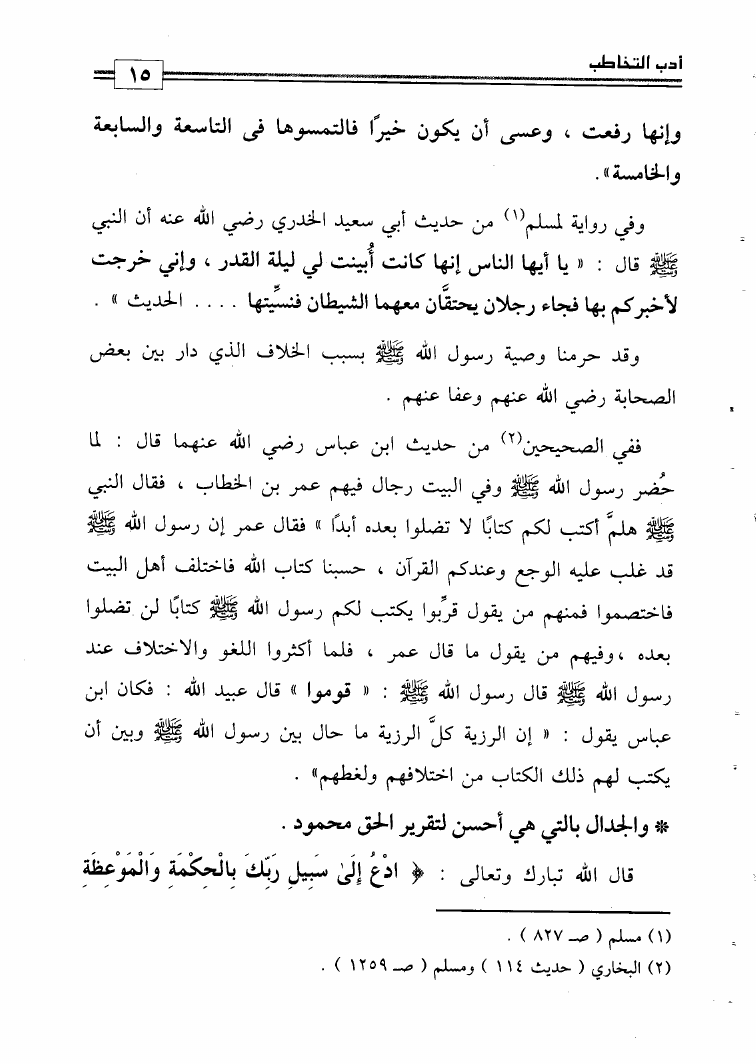 أدب التخاطب
١٥
وإنها رفعت ، وعسى أن يكون خيرًا فالتمسوها فى التاسعة والسابعة
والخامسة» .
وفي رواية لمسلم(١) من حديث أبي سعيد الخدري رضي الله عنه أن النبي
ﷺ قال : « يا أيها الناس إنها كانت أُبينت لي ليلة القدر ، وإني خرجت
لأخبركم بها فجاء رجلان يحتقَّان معهما الشيطان فنسِّيتها . . . . الحديث » .
وقد حرمنا وصية رسول الله ﷺ بسبب الخلاف الذي دار بين بعض
الصحابة رضي الله عنهم وعفا عنهم .
ففي الصحيحين(٢) من حديث ابن عباس رضي الله عنهما قال : لما
حُضر رسول الله ﷺ وفي البيت رجال فيهم عمر بن الخطاب ، فقال النبي
ﷺ هلمَّ أكتب لكم كتابًا لا تضلوا بعده أبدًا » فقال عمر إن رسول الله ﷺ
قد غلب عليه الوجع وعندكم القرآن ، حسبنا كتاب الله فاختلف أهل البيت
فاختصموا فمنهم من يقول قرِّبوا يكتب لكم رسول الله ﷺ كتابًا لن تضلوا
بعده ،وفيهم من يقول ما قال عمر ، فلما أكثروا اللغو والاختلاف عند
رسول الله ﷺ قال رسول الله ﷺ : « قوموا » قال عبيد الله : فكان ابن
عباس يقول : « إن الرزية كلَّ الرزية ما حال بين رسول الله ﷺ وبين أن
يكتب لهم ذلك الكتاب من اختلافهم ولغطهم» .
* والجدال بالتي هي أحسن لتقرير الحق محمود .
قال الله تبارك وتعالى : ﴿ ادْعُ إِلَىٰ سَبِيلِ رَبِّكَ بِالْحِكْمَةِ وَالْمَوْعِظَةِ
(١) مسلم ( صـ ٨٢٧ ) .
(٢) البخاري ( حديث ١١٤ ) ومسلم ( صـ ١٢٥٩ ) .